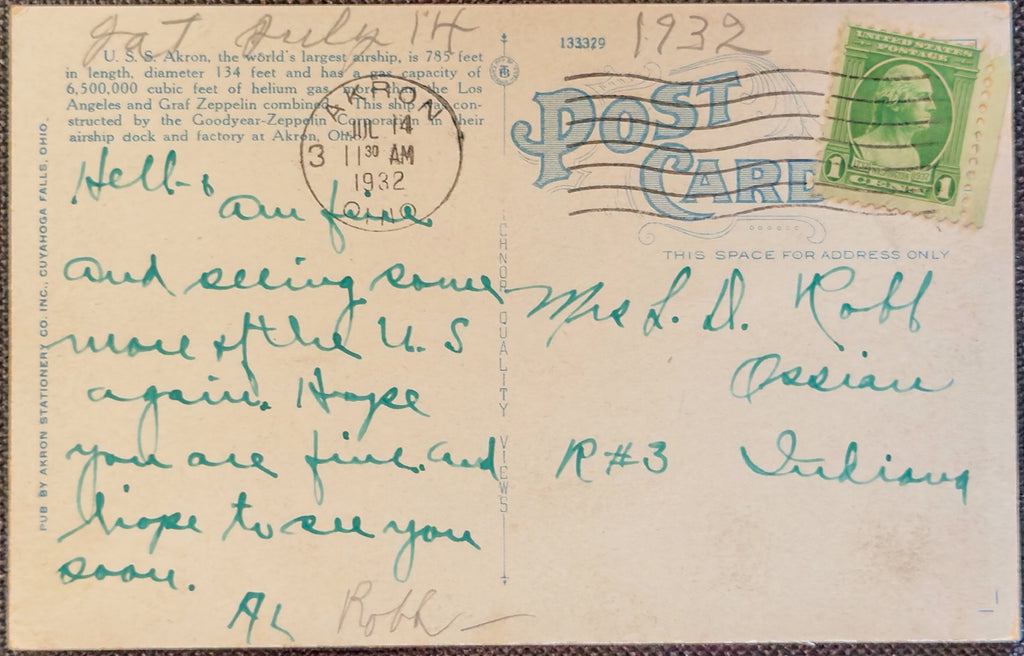 Sat July 14 1932
U. S. S. Akron, the world's largest airship, is 785 feet
in length, diameter 134 feet and has a gas capacity of
6,500,000 cubic feet of helium gas, more than the Los
Angeles and Graf Zeppelin combined. This ship was con-
structed by the Goodyear-Zeppelin Corporation in their
airship dock and factory at Akron, Ohio.
133329
AKRON
JUL 14
3 11 30 AM
1932
OHIO
POST
CARD
UNITED STATES
POSTAGE
1 CENT 1
THIS SPACE FOR ADDRESS ONLY
Hello
am fine
and seeing some
more of the U. S
again. Hope
you are fine. and
hope to see you
soon.
AL Robb
Mrs L. D. Robb
Ossian
R#3 Indiana
PUB BY AKRON STATIONERY CO. INC., CUYAHOGA FALLS, OHIO.
CHNOR QUALITY VIEWS